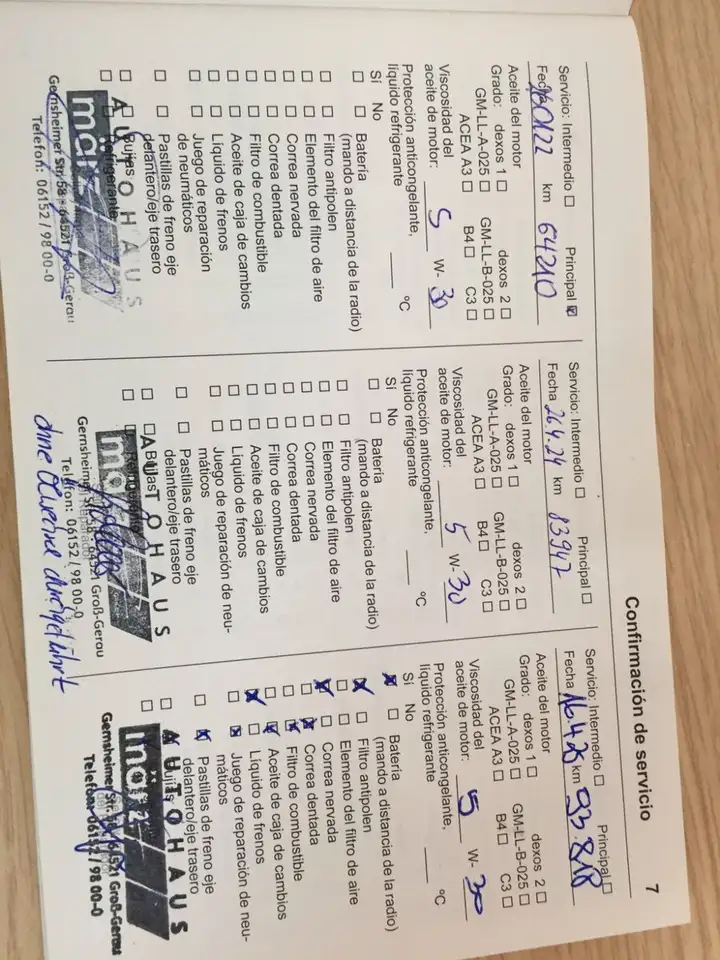 Confirmación de servicio
7
Servicio: Intermedio ☐ Principal ☑
Fecha km 64210
Aceite del motor
Grado: dexos 1 ☐ dexos 2 ☐
GM-LL-A-025 ☐ GM-LL-B-025 ☐
ACEA A3 ☐ B4 ☐ C3 ☐
Viscosidad del
aceite de motor: 5 W- 30
Protección anticongelante,
líquido refrigerante °C
Sí No
☐ ☐ Batería
(mando a distancia de la radio)
☐ ☐ Filtro antipolen
☐ ☐ Elemento del filtro de aire
☐ ☐ Correa nervada
☐ ☐ Correa dentada
☐ ☐ Filtro de combustible
☐ ☐ Aceite de caja de cambios
☐ ☐ Líquido de frenos
☐ ☐ Juego de reparación
de neumáticos
☐ ☐ Pastillas de freno eje
delantero/eje trasero
☐ ☐ Bujías
☐ ☐ Refrigerante
AUTOHAUS
Gernsheimer Str. 58 · 64521 Groß-Gerau
Telefon: 06152 / 98 00-0
Servicio: Intermedio ☐ Principal ☐
Fecha 26.4.24 km 83947
Aceite del motor
Grado: dexos 1 ☐ dexos 2 ☐
GM-LL-A-025 ☐ GM-LL-B-025 ☐
ACEA A3 ☐ B4 ☐ C3 ☐
Viscosidad del
aceite de motor: 5 W- 30
Protección anticongelante,
líquido refrigerante °C
Sí No
☐ ☐ Batería
(mando a distancia de la radio)
☐ ☐ Filtro antipolen
☐ ☐ Elemento del filtro de aire
☐ ☐ Correa nervada
☐ ☐ Correa dentada
☐ ☐ Filtro de combustible
☐ ☐ Aceite de caja de cambios
☐ ☐ Líquido de frenos
☐ ☐ Juego de reparación de neu-
máticos
☐ ☐ Pastillas de freno eje
delantero/eje trasero
☐ ☐ Bujías
AUTOHAUS
Gernsheimer Str. 58 · 64521 Groß-Gerau
Telefon: 06152 / 98 00-0
ohne durchgeführt
Servicio: Intermedio ☐ Principal ☐
Fecha 16.4.25 km 93.818
Aceite del motor
Grado: dexos 1 ☐ dexos 2 ☐
GM-LL-A-025 ☐ GM-LL-B-025 ☐
ACEA A3 ☐ B4 ☐ C3 ☐
Viscosidad del
aceite de motor: 5 W- 30
Protección anticongelante,
líquido refrigerante °C
Sí No
☒ ☐ Batería
(mando a distancia de la radio)
☒ ☐ Filtro antipolen
☐ ☐ Elemento del filtro de aire
☒ ☐ Correa nervada
☐ ☒ Correa dentada
☐ ☒ Filtro de combustible
☐ ☒ Aceite de caja de cambios
☒ ☐ Líquido de frenos
☐ ☒ Juego de reparación de neu-
máticos
☐ ☒ Pastillas de freno eje
delantero/eje trasero
AUTOHAUS
Gernsheimer Str. Groß-Gerau
Telefon: 06152 / 98 00-0